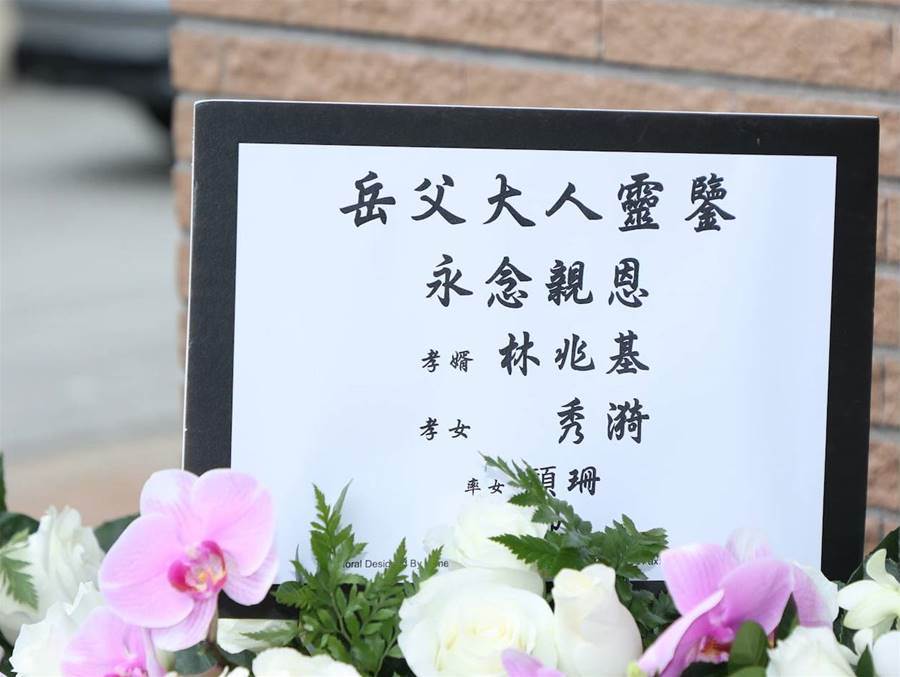 岳父大人靈鑒
永念親恩
孝婿 林兆基
孝女 秀漪
率女 珊
Designed By